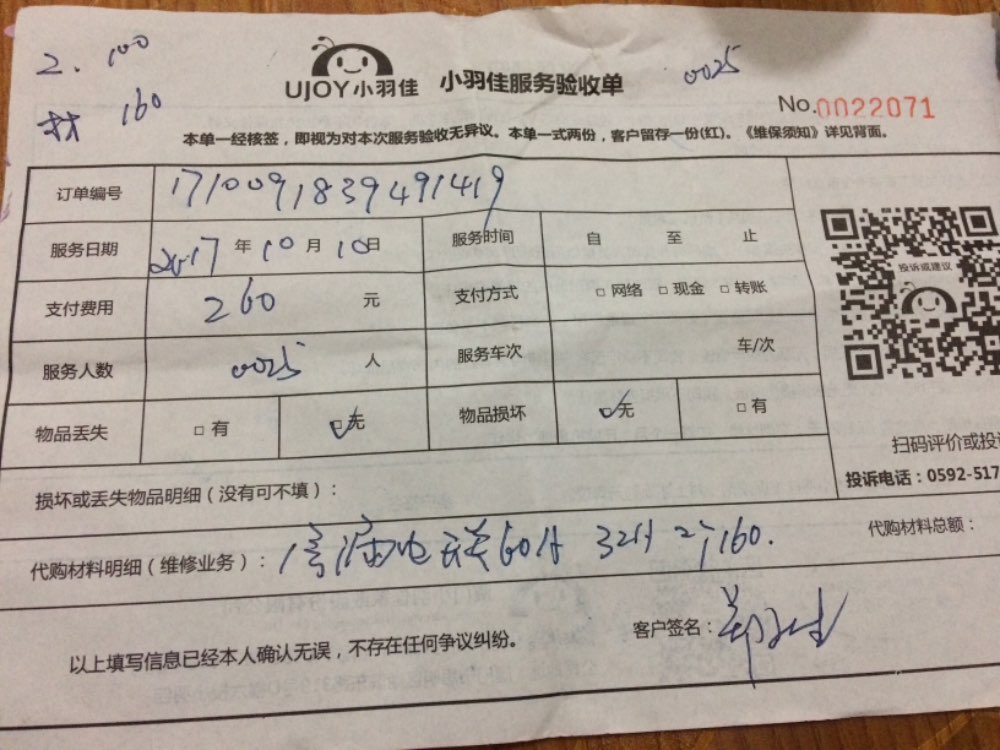 2. 100
材 160
UJOY小羽佳 小羽佳服务验收单
0025
No.0022071
本单一经核签，即视为对本次服务验收无异议。本单一式两份，客户留存一份(红)。《维保须知》详见背面。
订单编号 1710091839491419
服务日期 2017 年 10 月 10 日 服务时间 自 至 止
支付费用 260 元 支付方式 □ 网络 □ 现金 □ 转账
服务人数 0025 人 服务车次 车/次
物品丢失 □ 有 ☑ 无 物品损坏 ☑ 无 □ 有
投诉或建议
扫码评价或投
投诉电话：0592-517
损坏或丢失物品明细（没有可不填）：
代购材料明细（维修业务）： 漏电 60A 32A 160.
代购材料总额：
客户签名：
以上填写信息已经本人确认无误，不存在任何争议纠纷。